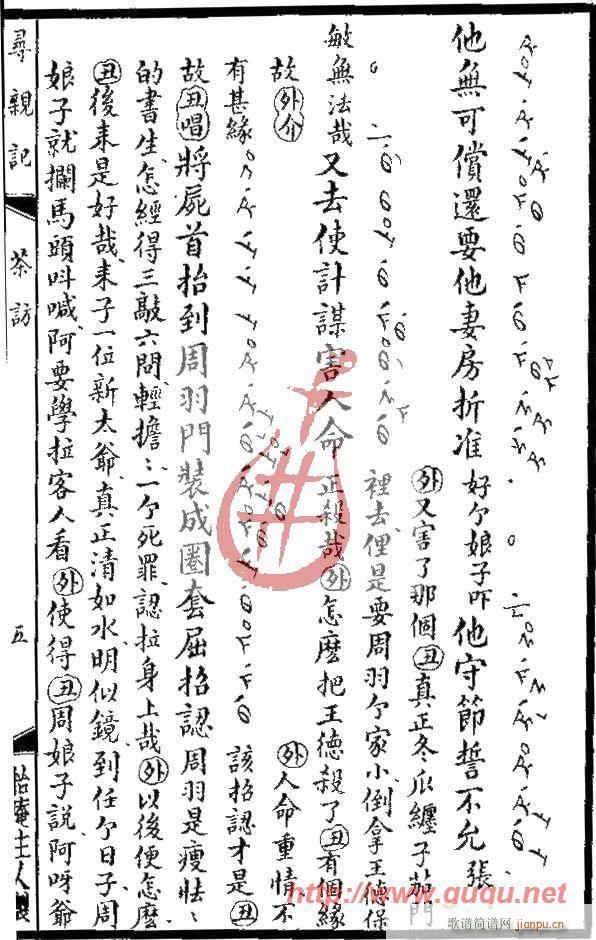 他無可償還要他妻房折准 好亇娘子吓 他守節誓不允 張
敏無法哉 又去使計謀害人命 正殺哉 外 怎麼把王德殺了 丑 有個緣
外 又害了那個 丑 真正冬瓜纏子茄門
裡去俚是要周羽亇家小倒拿王德保
故 外介
有甚緣
外 人命重情不
該招認才是 丑
故 丑唱 將屍首抬到周羽門裝成圈套屈招認 周羽是瘦怯〻
的書生怎經得三敲六問輕擔〻一亇死罪認拉身上哉 外 以後便怎麼
丑 後来是好哉来子一位新太爺真正清如水明似鏡到任亇日子周
娘子就攔馬頭呌喊阿要學拉客人看 外 使得 丑 周娘子說阿呀爺
尋親記
茶訪
五
怡庵主人製
http://www.guqu.net
歌谱简谱网
jianpu.cn